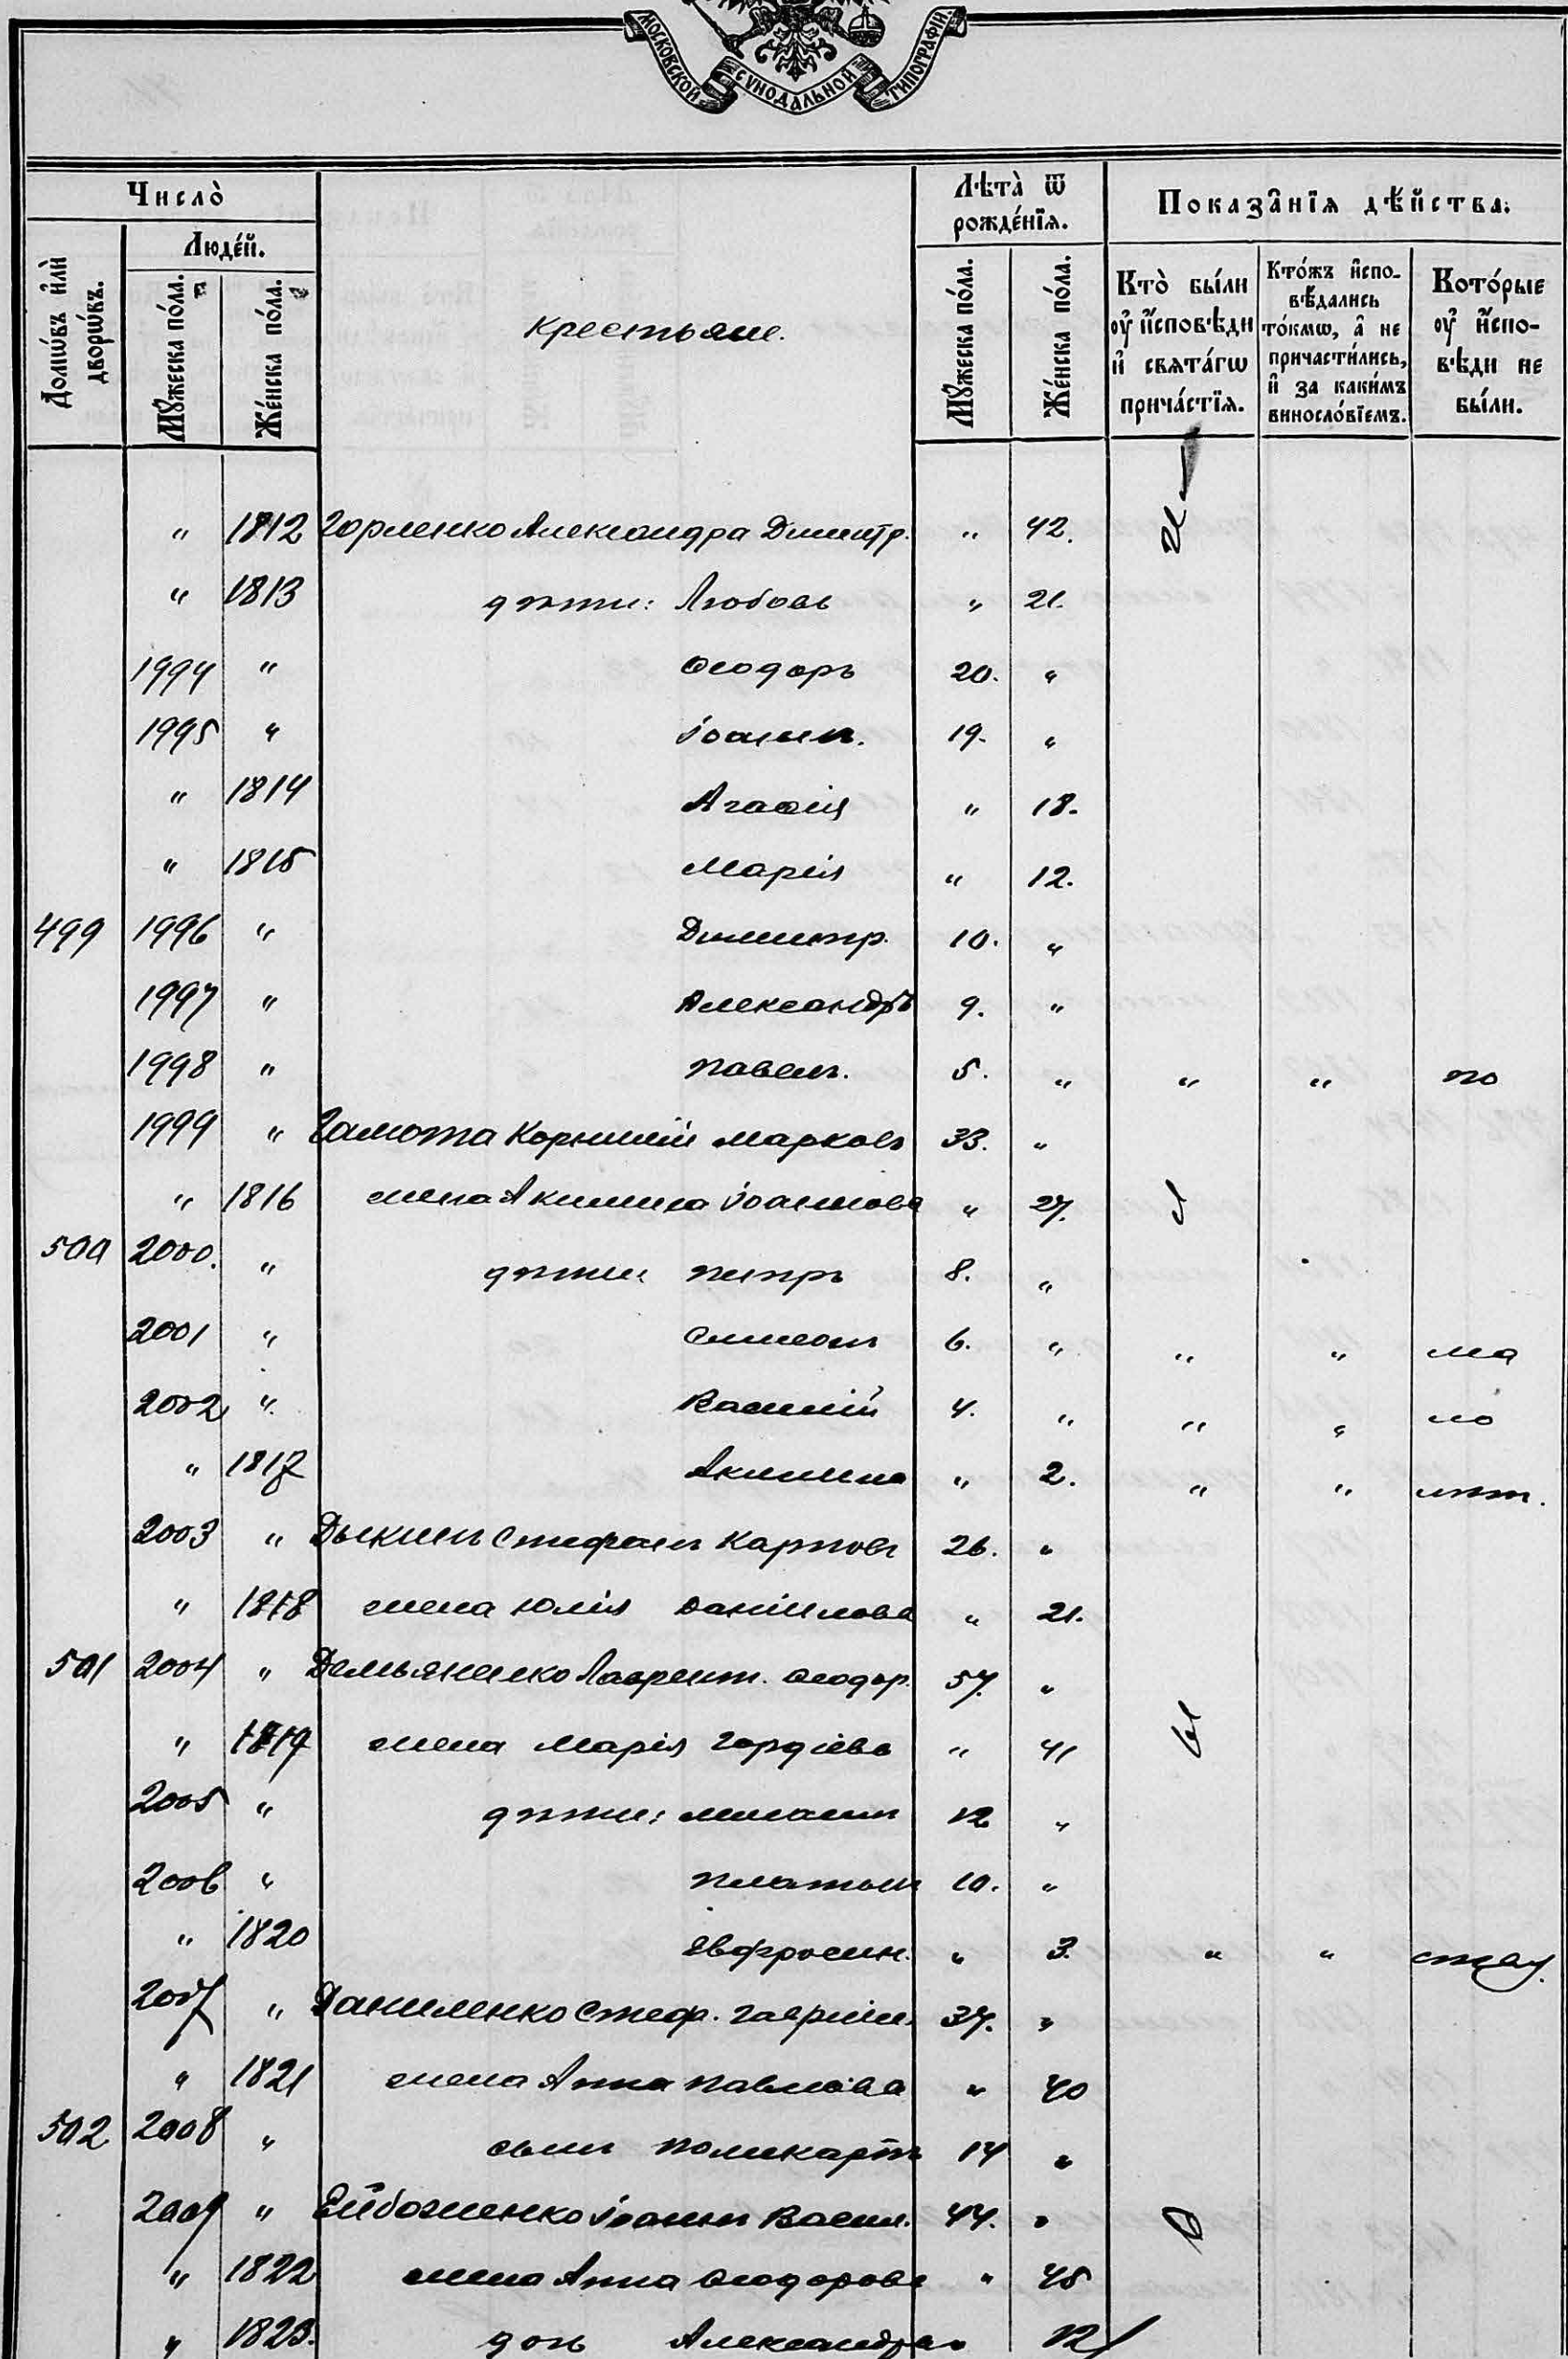 МОСКОВСКОЙ СѴНОДАЛЬНОЙ ТИПОГРАФІИ.
Число̀
Лѣта̀ ѿ рожде́нїѧ.
Показа̑нїѧ дѣ́йства.
Домѡ́въ и҆лѝ дворѡ́въ.
Люде́й.
Мꙋ́жеска по́ла.
Же́нска по́ла.
Крестьяне.
Мꙋ́жеска по́ла.
Же́нска по́ла.
Кто̀ бы́ли оу҆ и҆сповѣди и҆ свѧта́гѡ прича́стїѧ.
Кто́жъ и҆спо-вѣ́дались то́кмѡ, а҆ не причасти́лись, и҆ за каки́мъ винослóвїемъ.
Кото́рые оу҆ и҆спо-вѣди не бы́ли.
" 1812 Горленко Александра Димитр. " 42.
" 1813 дѣти: Любовь " 21.
1994 " Ѳеодоръ 20. "
1995 " Іоаннъ. 19. "
" 1814 Агаѳія " 18.
" 1815 Марія " 12.
499 1996 " Димитр. 10. "
1997 " Александръ 9. "
1998 " Павелъ. 5. " " " по
1999 " Гамота Корнилій Марковъ 33. "
" 1816 жена Акилина Іоаннова " 27.
500 2000. " дѣти: Петръ 8. "
2001 " Симеонъ 6. " " " ма
2002 " Василій 4. " " " ло
" 1817 Акилина " 2. " " лѣт.
2003 " Дыкинъ Стефанъ Карповъ 26. "
" 1818 жена Юлія Даніилова " 21.
501 2004 " Демьяненко Лаврент. Ѳеодор. 57. "
" 1819 жена Марія Гордіева " 41
2005 " дѣти: 12 "
2006 " Платонъ 10. "
" 1820 Евфросин. " 3. " " ству.
2007 " Даниленко Стеф. Гавріил. 37. "
" 1821 жена Анна Павлова " 40
502 2008 " сынъ Поликарпъ 14 "
2009 " Ейбоженко Іоаннъ Васил. 44. "
" 1822 жена Анна Ѳеодорова " 45
" 1823. дочь Александра " 12